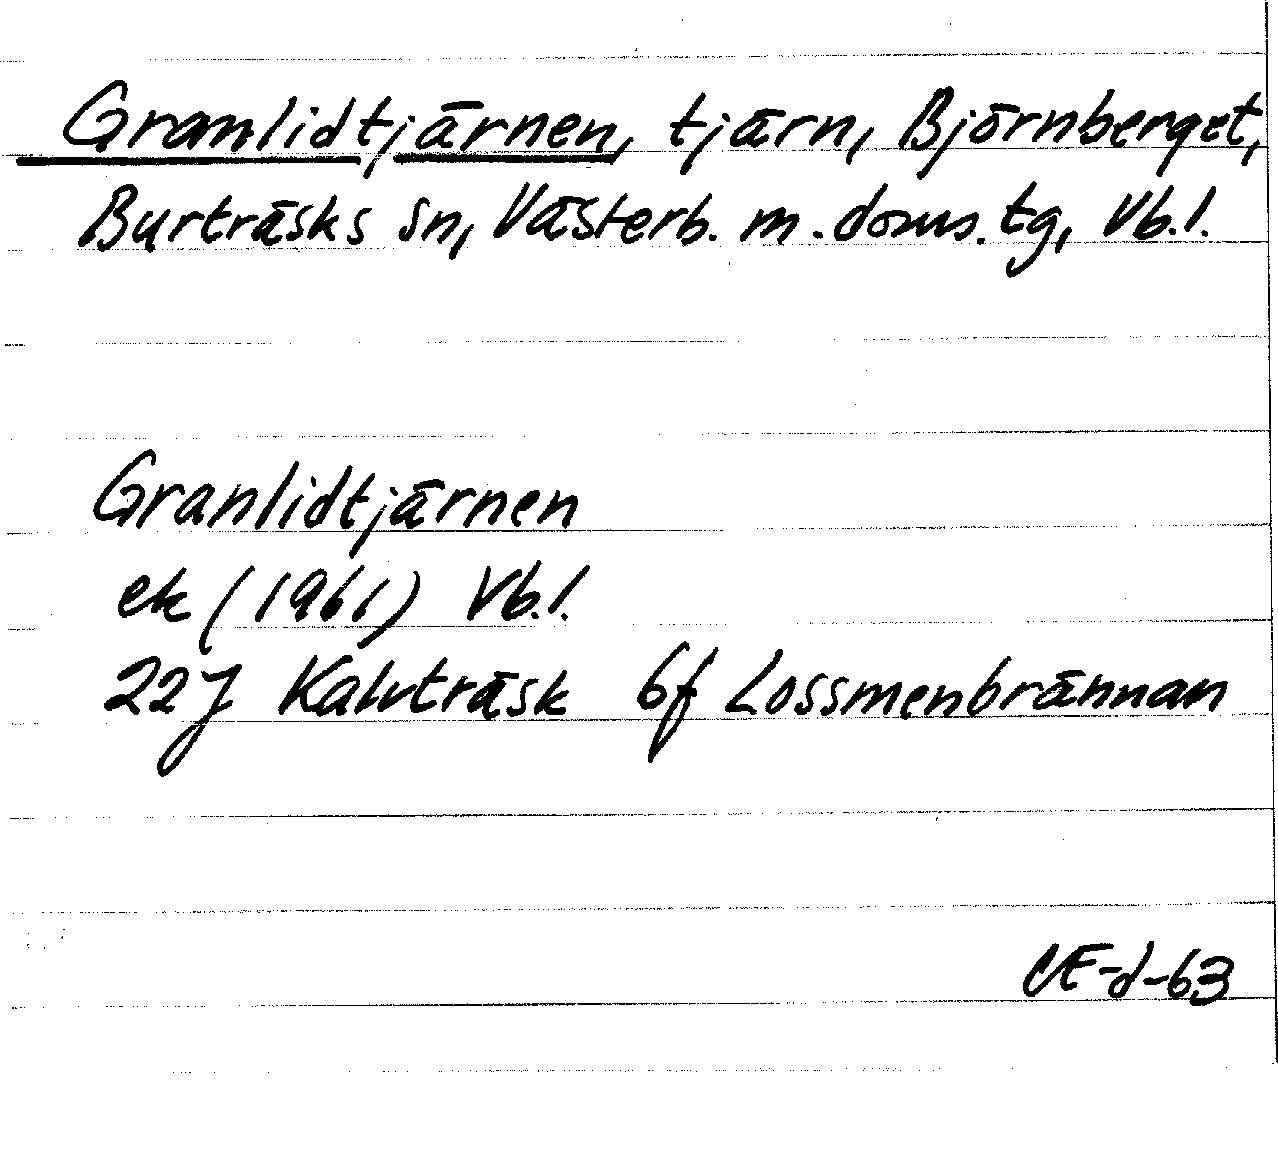 Granlidtjärnen, tjärn, Björnberget,
Burträsks sn, Västerb. m. doms. tg, Vb.l.
Granlidtjärnen
ek (1961) Vb.l.
22J Kalvträsk 6f Lossmenbrännan
CE-d-63